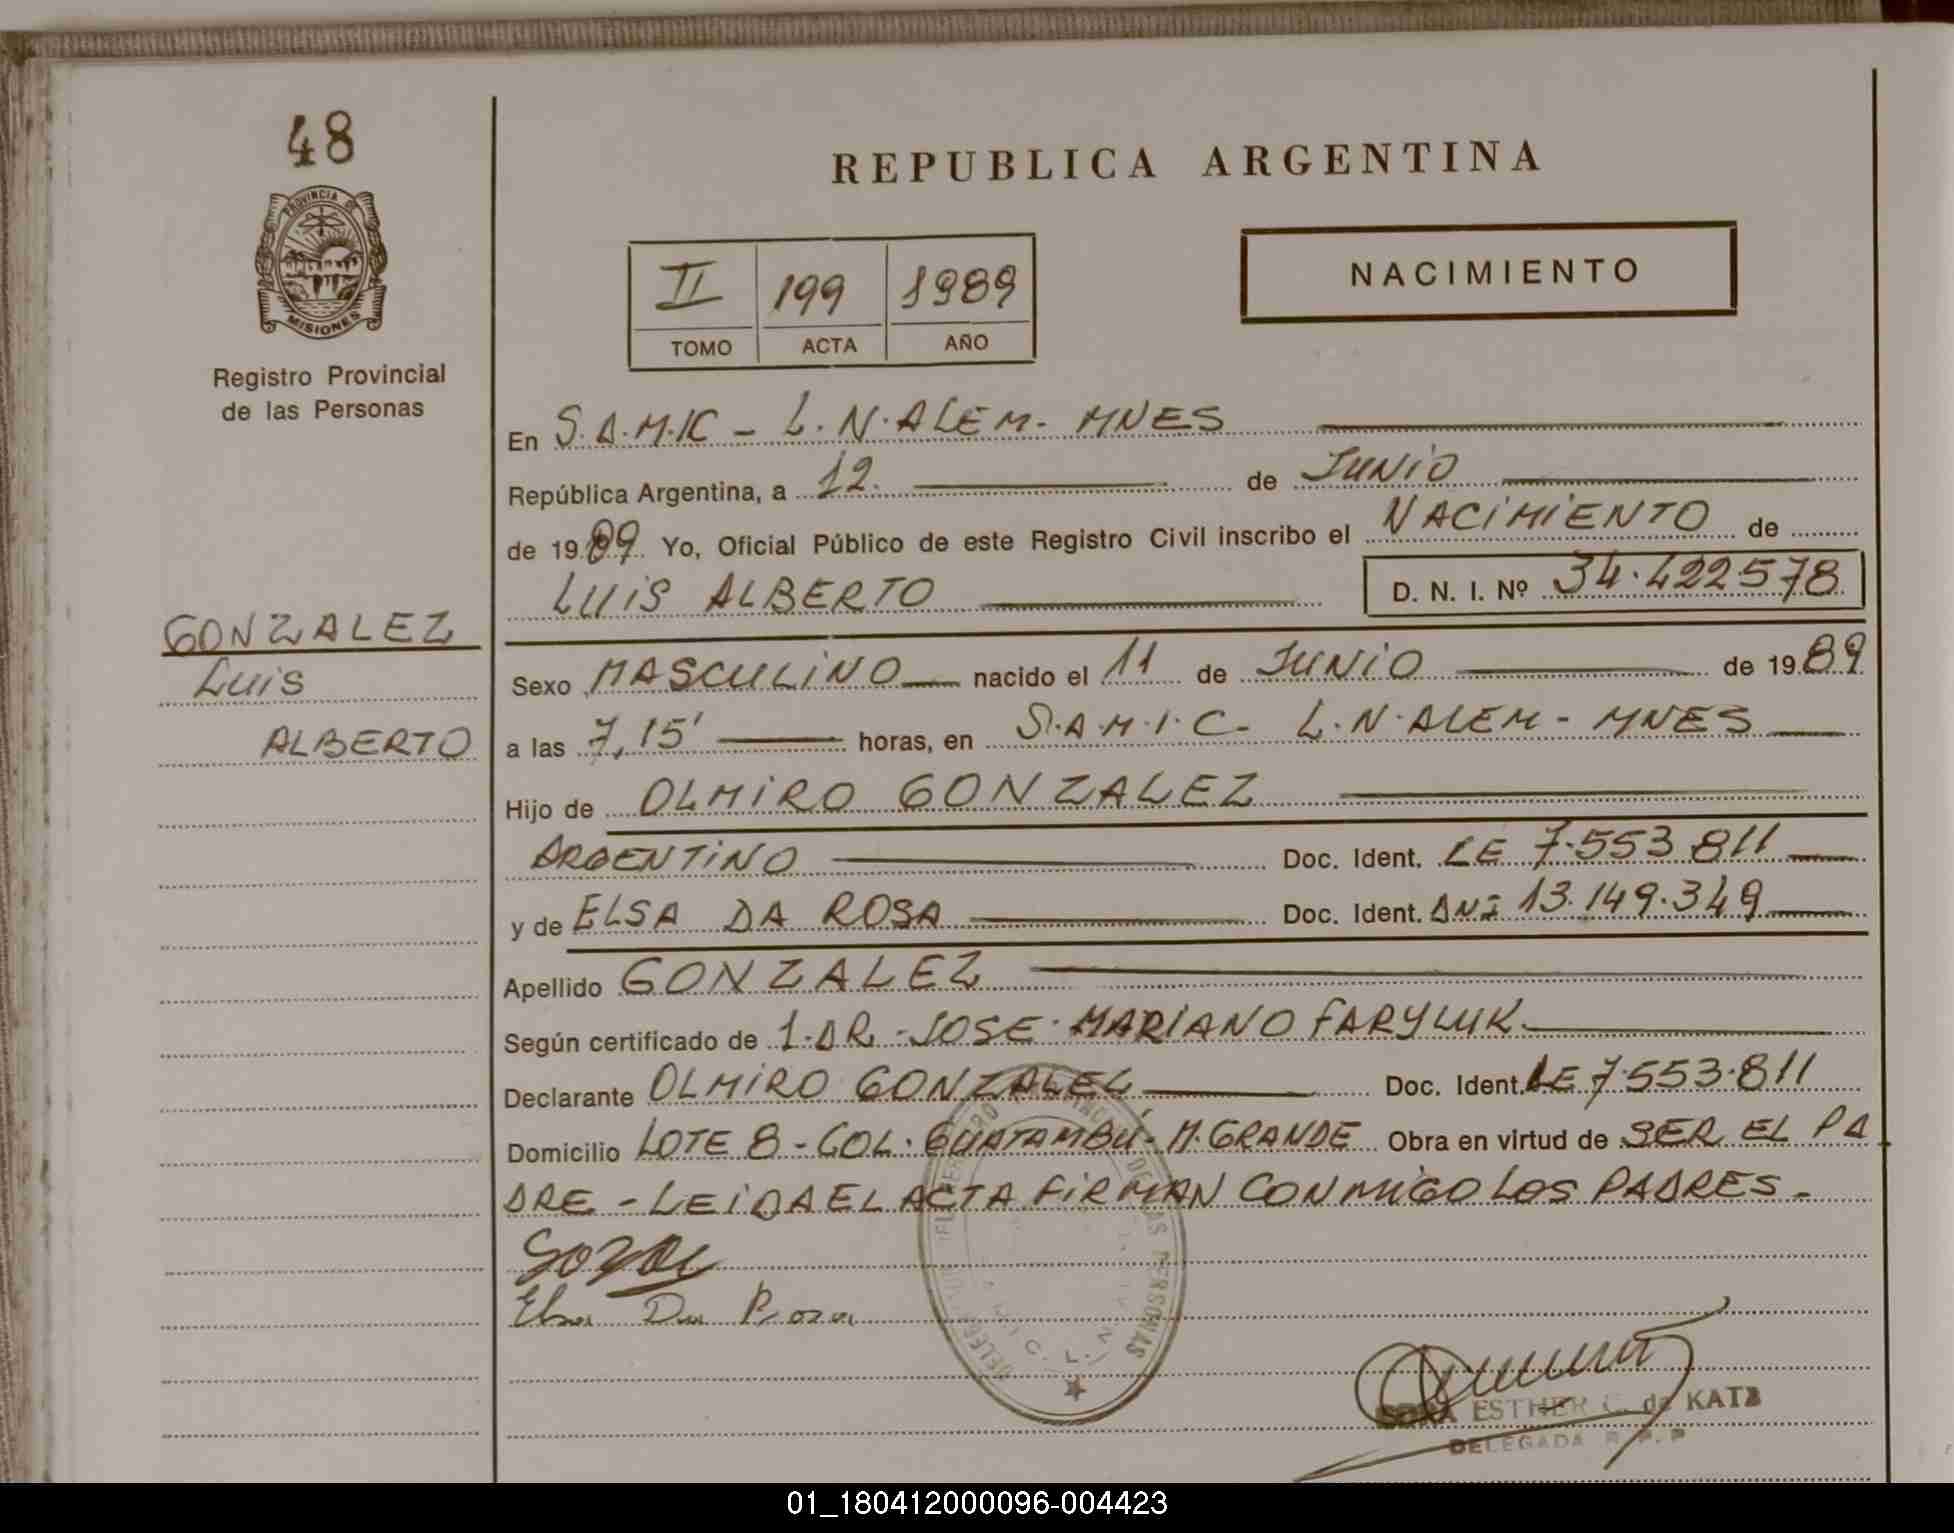 48
PROVINCIA DE
MISIONES
Registro Provincial
de las Personas
GONZALEZ
LUIS
ALBERTO
REPUBLICA ARGENTINA
II 199 1989
TOMO ACTA AÑO
NACIMIENTO
En S.A.M.IC - L.N.ALEM - MNES
República Argentina, a 12. de JUNIO
de 1989. Yo, Oficial Público de este Registro Civil inscribo el NACIMIENTO de
LUIS ALBERTO D. N. I. Nº 34.422578
Sexo MASCULINO nacido el 11 de JUNIO de 1989
a las 7,15' horas, en S.A.M.I.C- L.N.ALEM - MNES
Hijo de OLMIRO GONZALEZ
ARGENTINO Doc. Ident. LE 7.553.811
y de ELSA DA ROSA Doc. Ident. DNI 13.149.349
Apellido GONZALEZ
Según certificado de 1.DR.-JOSE MARIANO FARYLUK
Declarante OLMIRO GONZALEZ Doc. Ident. LE 7.553.811
Domicilio LOTE 8 - COL. GUATAMBÚ- M.GRANDE Obra en virtud de SER EL PA
DRE - LEIDA EL ACTA FIRMAN CONMIGO LOS PADRES -
Elsa Da Rosa
DE LAS PERSONAS
ESTHER C. de KATZ
DELEGADA R. P. P
01_180412000096-004423